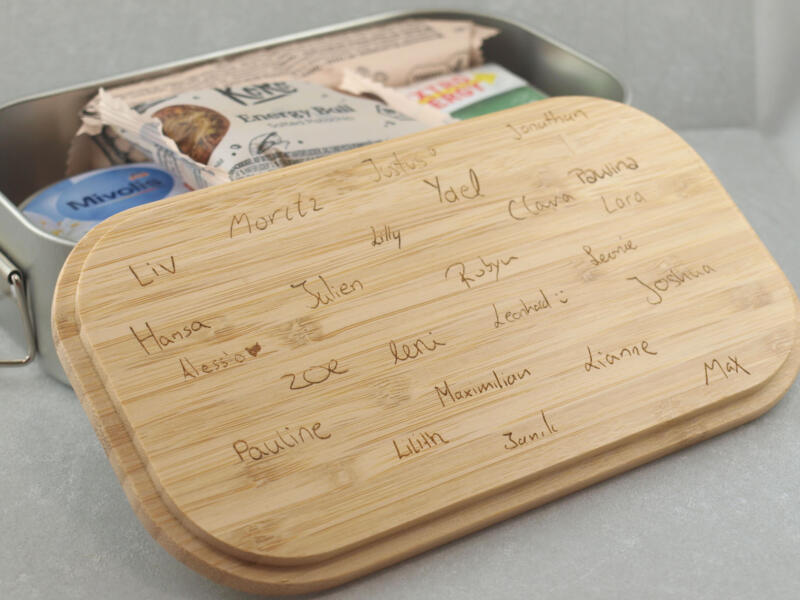 KoRo
Energy Ball
Salted Pistachio
Mivolis
Jonathan
Justus
Moritz
Yael
Pawina
Clara
Lara
Lilly
Liv
Julien
Robyn
Leonie
Joshua
Hansa
Leonhard :)
Alessio
zoe
leni
Lianne
Maximilian
Max
Pauline
Lilith
Janik